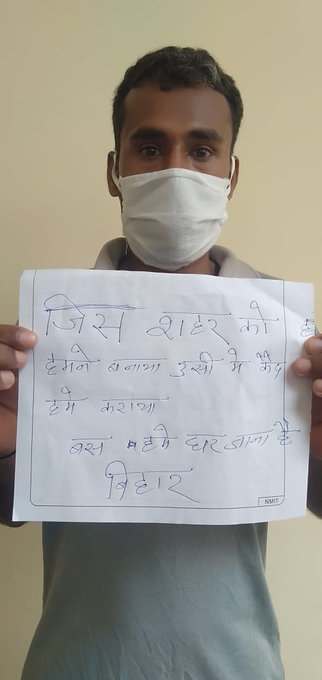 जिस शहर को
हमने बनाया उसी मे कैद
हमे कराया
बस हमे घर जाना है
बिहार
NMIT